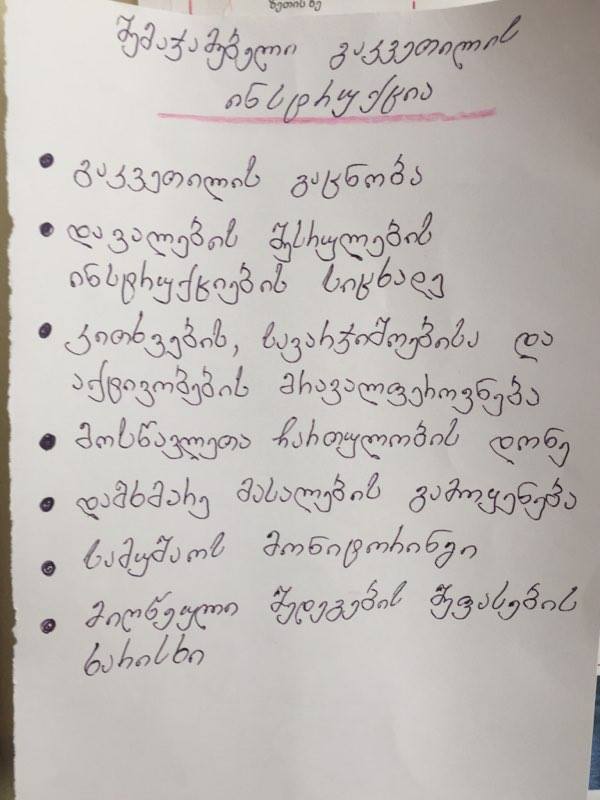 ზეთის ზე
შემაჯამებელი გაკვეთილის
ინსტრუქცია
• გაკვეთილის გაცნობა
• დავალების შესრულების
ინსტრუქციების სიცხადე
• კითხვების, სავარჯიშოებისა და
აქტივობების მრავალფეროვნება
• მოსწავლეთა ჩართულობის დონე
• დამხმარე მასალების გამოყენება
• სამუშაოს მონიტორინგი
• მიღწეული შედეგების შეფასების
ხარისხი